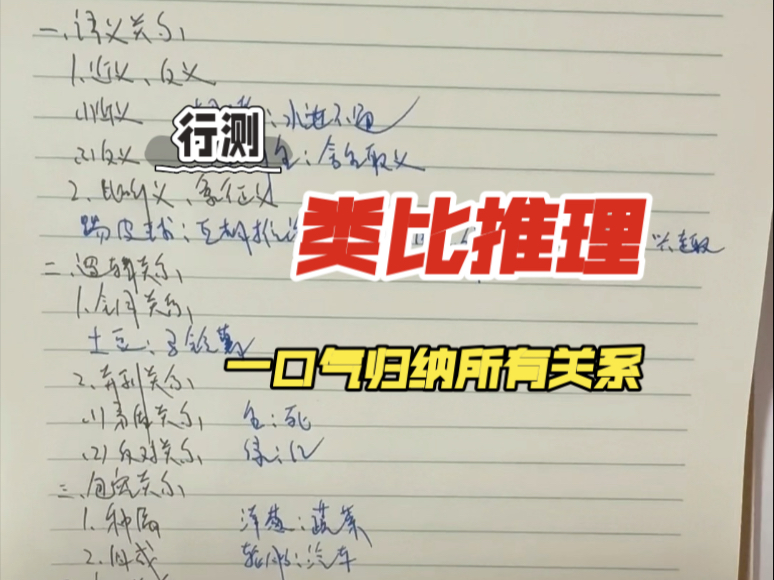 一、语义关系
1.近义、反义
(1)近义 :水泄不通
(2)反义 生:舍生取义
行测
2.比喻义、象征义
踢皮球:互相推诿
类比推理
二、逻辑关系
1.全同关系
土豆:马铃薯
一口气归纳所有关系
2.并列关系
(1)矛盾关系 生:死
(2)反对关系 绿:红
三、包容关系
1.种属 洋葱:蔬菜
2.组成 轮胎:汽车